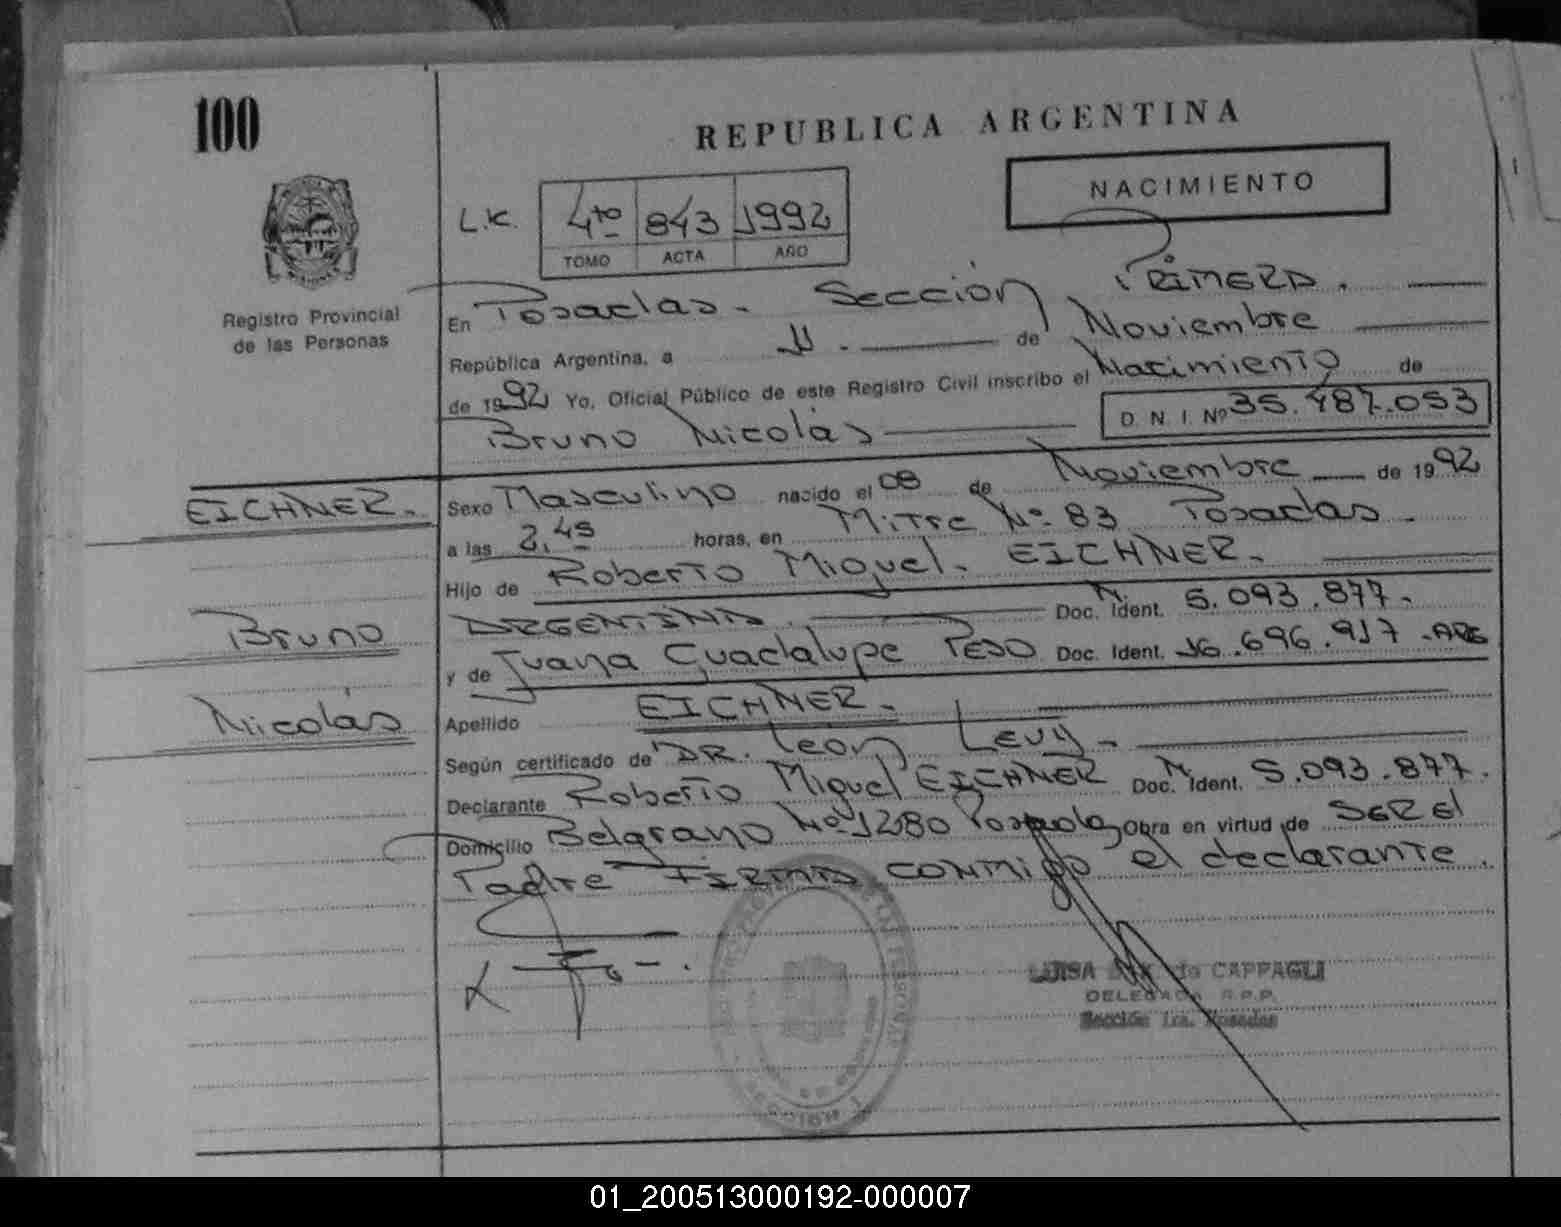 100
REPUBLICA ARGENTINA
NACIMIENTO
L.K. 4to 843 1992
TOMO ACTA AÑO
Registro Provincial
de las Personas
En Posadas. Sección Primera.
República Argentina, a 11. de Noviembre
de 1992 Yo, Oficial Público de este Registro Civil inscribo el Nacimiento de
Bruno Nicolás D. N. I. Nº 35.487.053
EICHNER.
Bruno
Nicolás
Sexo Masculino nacido el 08 de Noviembre de 1992
a las 2,45 horas, en Mitre Nº 83 Posadas.
Hijo de Roberto Miguel. EICHNER.
ARGENTINA. Doc. N. Ident. 5.093.877.
y de Juana Guadalupe PESO Doc. Ident. 16.696.917.ARG
Apellido EICHNER.
Según certificado de DR. León Levy.
Declarante Roberto Miguel EICHNER Doc. N. Ident. 5.093.877.
Domicilio Belgrano Nº 1280 Posadas Obra en virtud de SER el
Padre FIRMA CONMigo el declarante.
LUISA de CAPPAGLI
DELEGADA R.P.P.
Sección 1ra. Posadas
01_200513000192-000007